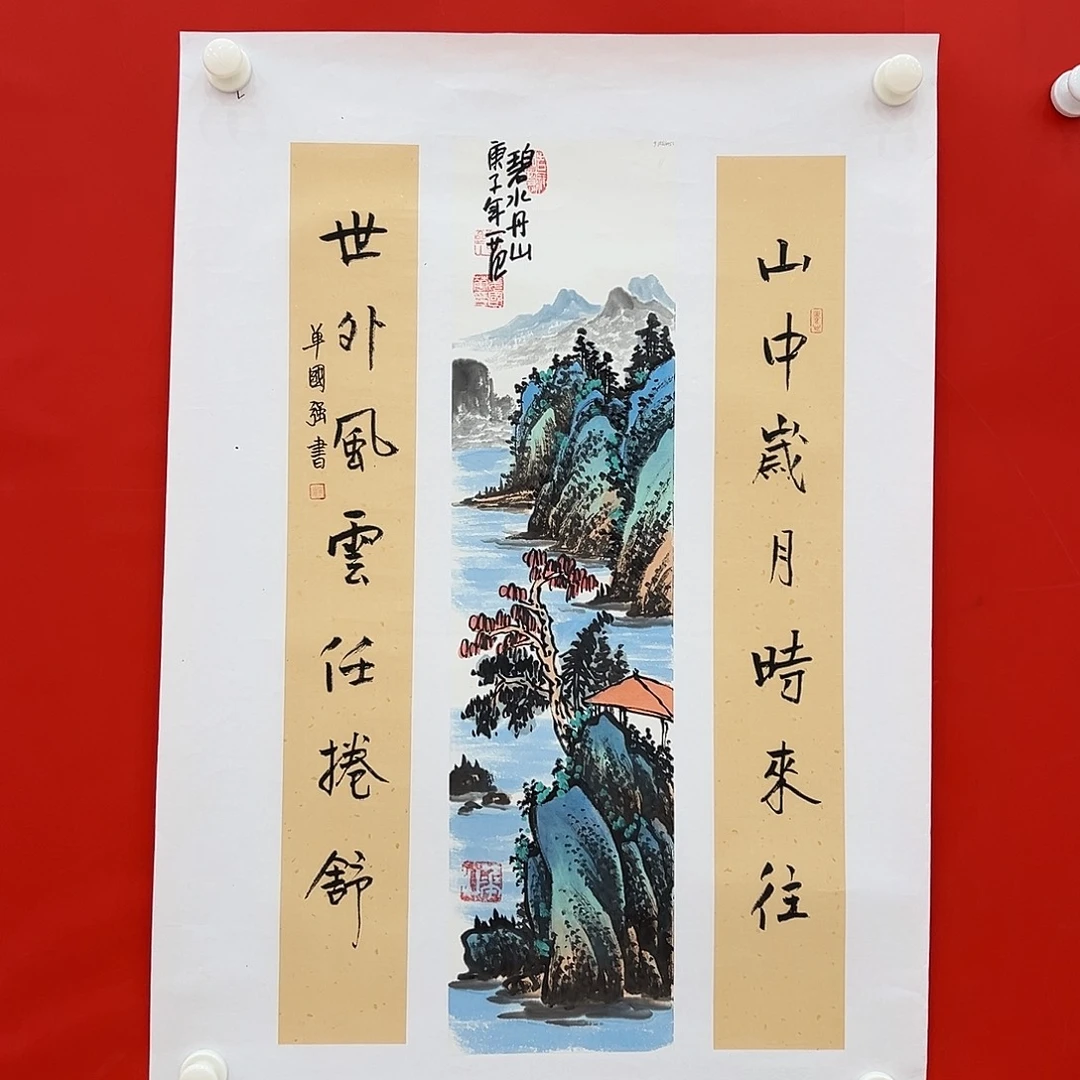 山中歲月時來往
碧水丹山
庚子年一芭
世外風雲任捲舒
單國強書